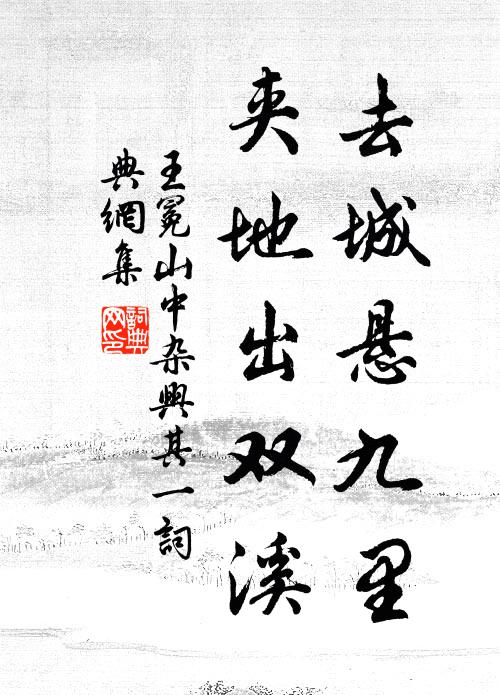 去城悬九里
夹地出双溪
王冕山中杂兴其一词
典网集
词典
网印